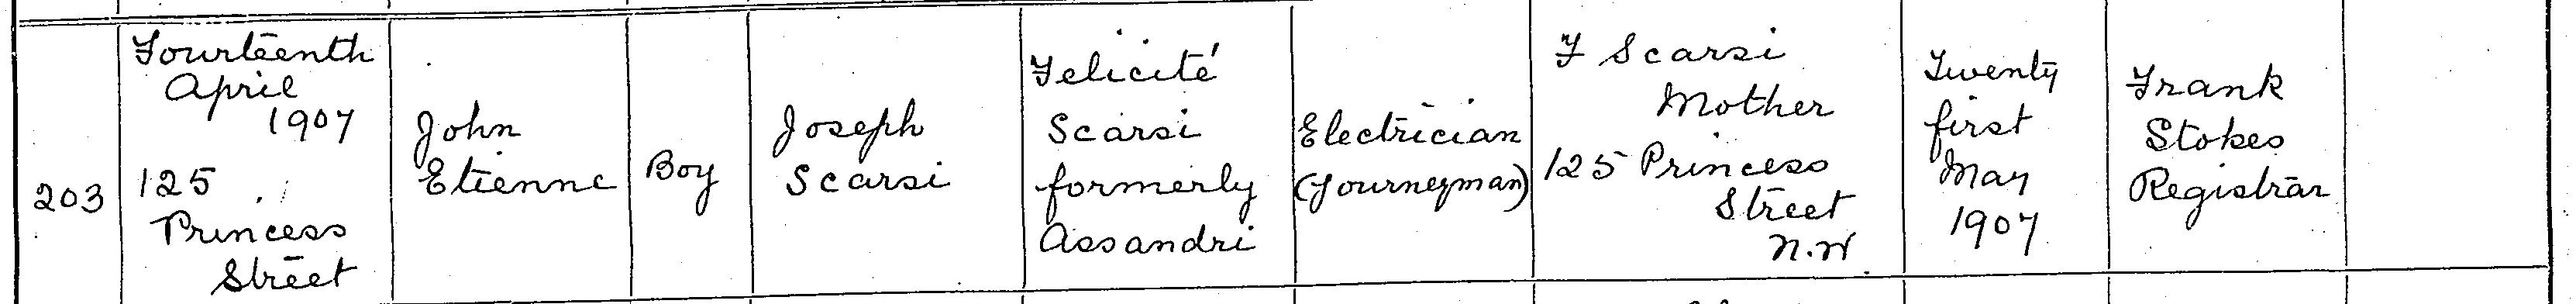 203
Fourteenth
April
1907
125
Princess
Street
John
Etienne
Boy
Joseph
Scarsi
Felicité
Scarsi
formerly
Assandri
Electrician
(Journeyman)
F Scarsi
Mother
125 Princess
Street
N.W.
Twenty
first
May
1907
Frank
Stokes
Registrar